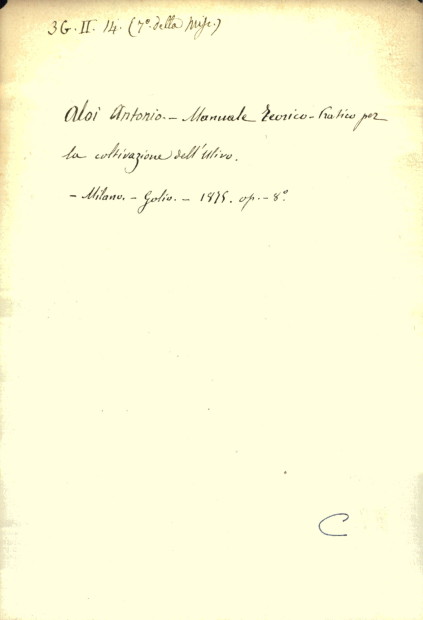 3G. II. 14. (7º. della Misc.)
Aloi Antonio. - Manuale Teorico-Pratico per
la coltivazione dell'Ulivo.
- Milano. - Golio. - 1875. op. - 8º
C